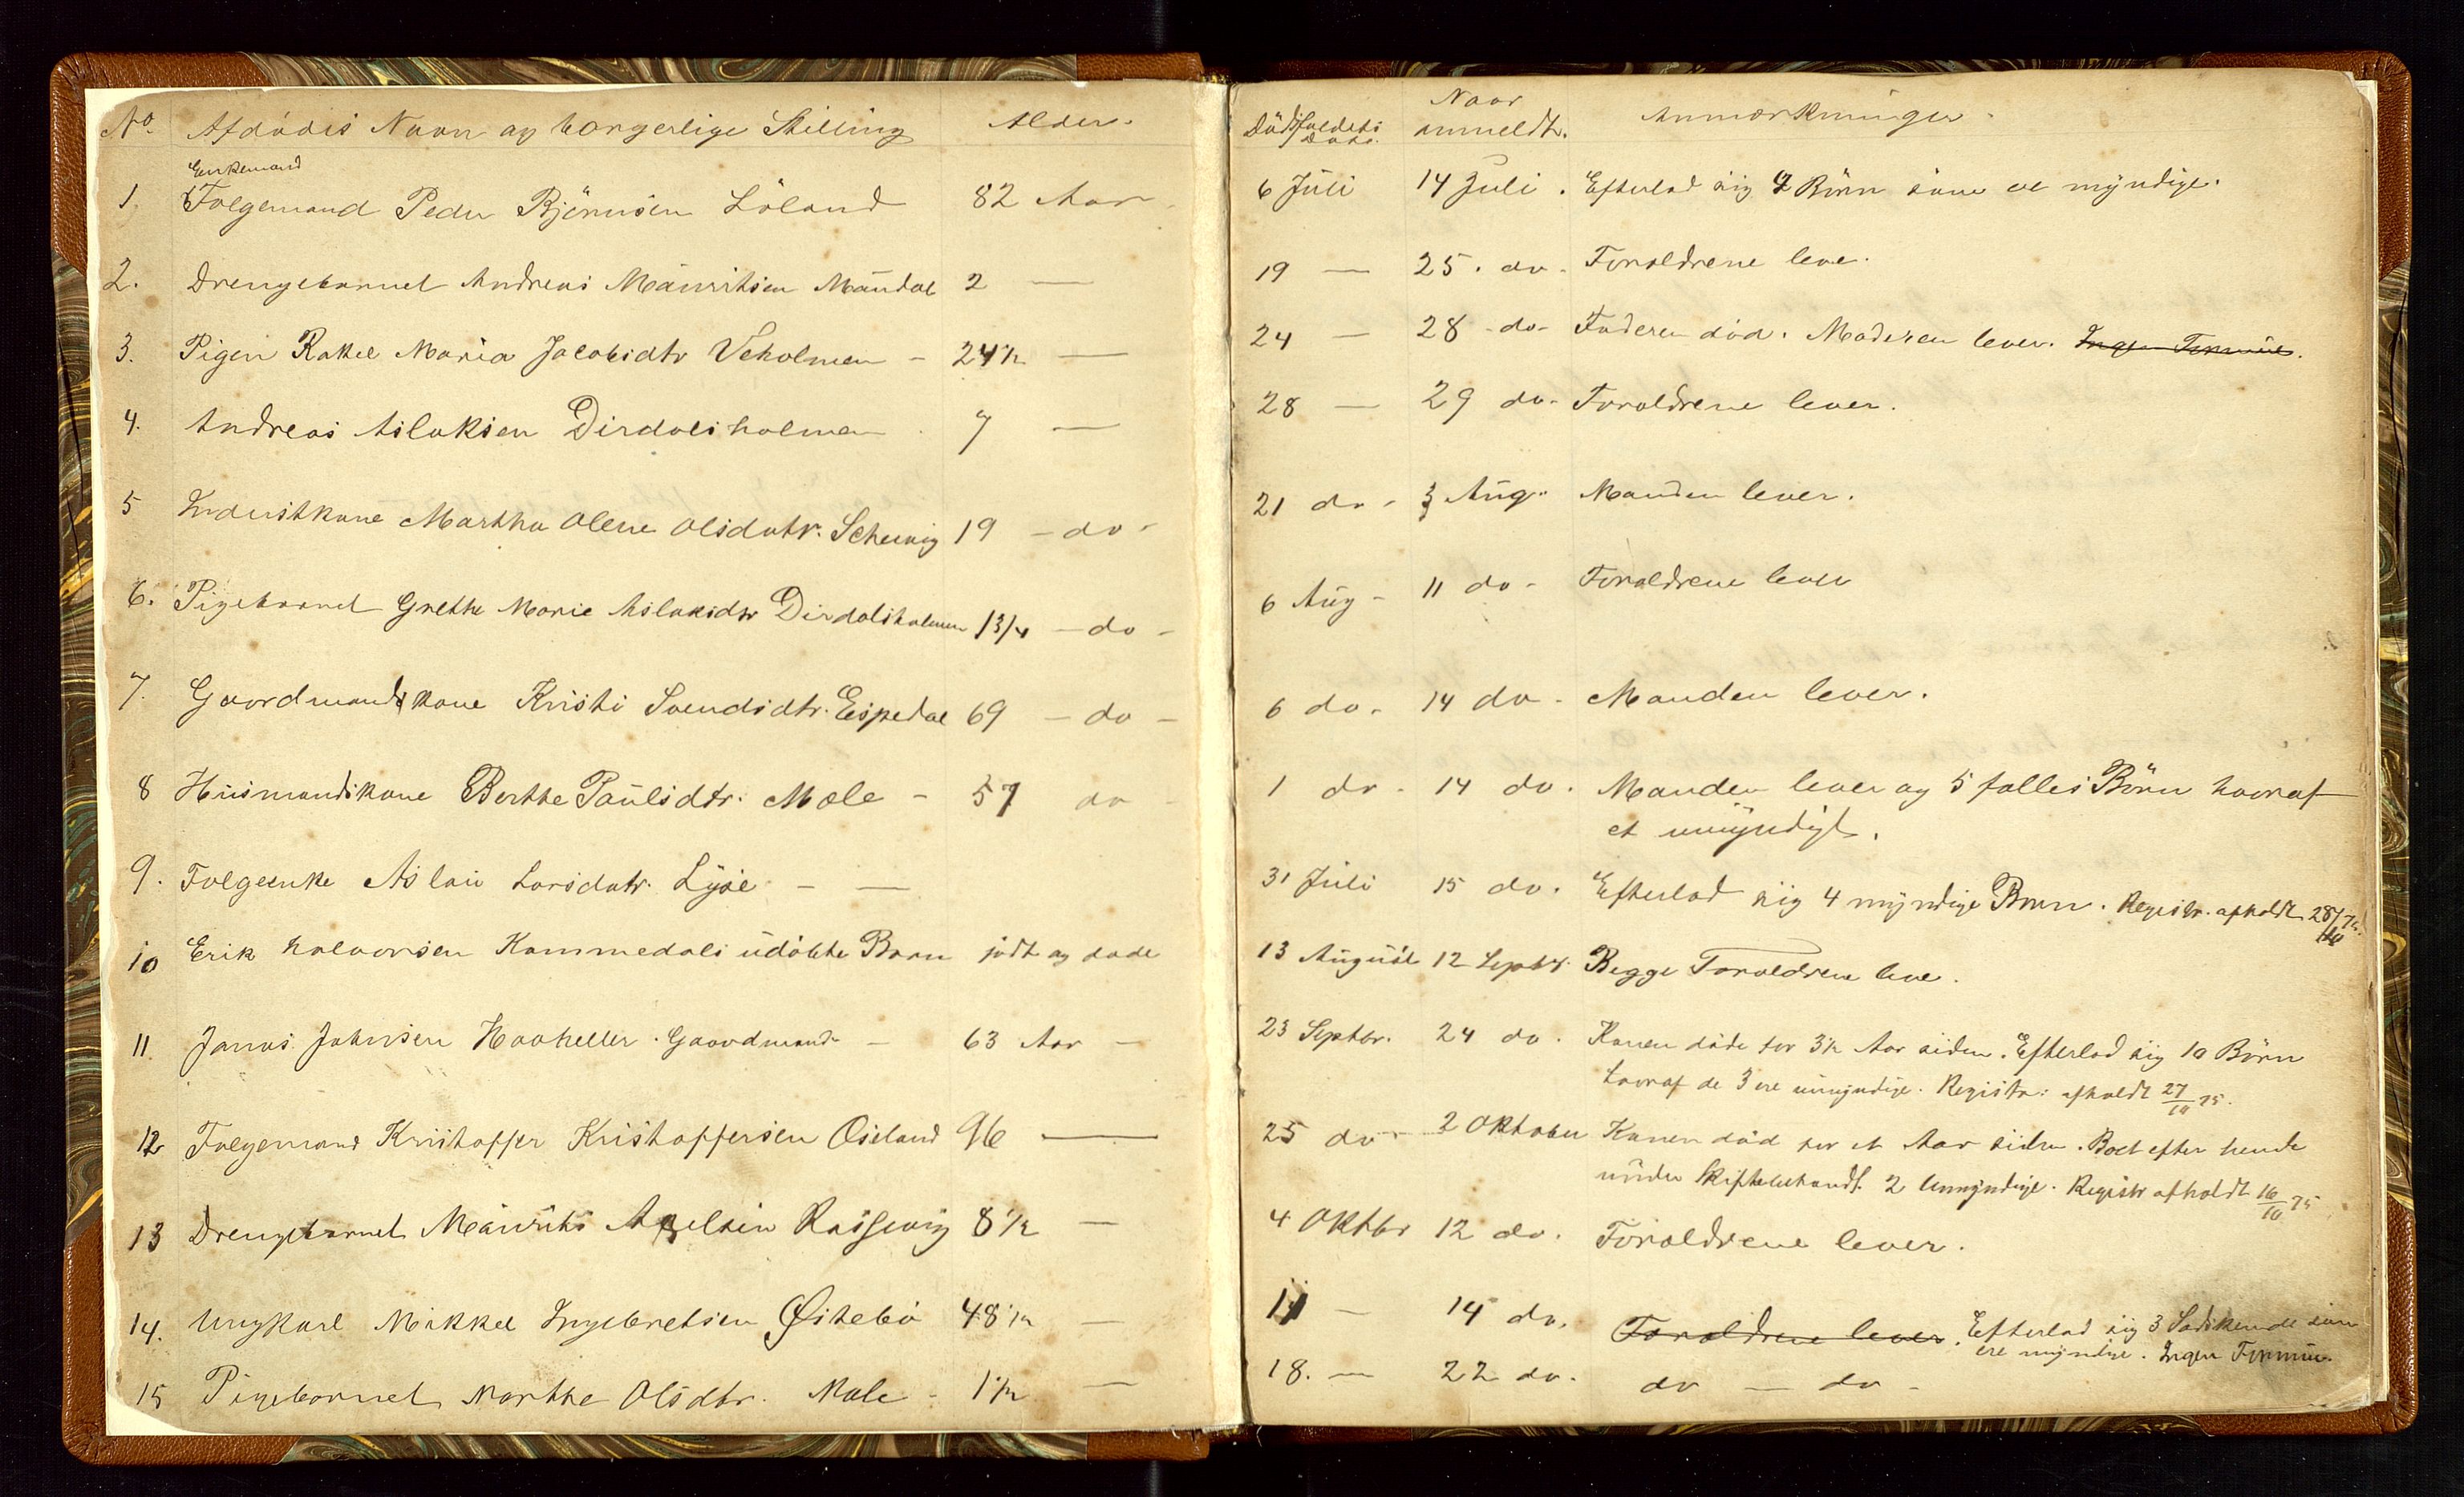 No. Afdødes Navn og borgerlige Stilling Alder.
Enkemand
1. Folgemand Peder Bjørnsen Löland 82 Aar
2. Drengebarnet Andreas Mauritsen Maudal 2 —
3. Pigen Rakel Maria Jacobsdtr Veholmen - 24½ —
4. Andreas Aslaksen Dirdalsholmen 7 —
5 Inderstkone Martha Olene Olsdatr. 19 - do -
6. Pigebarnet Grethe Marie Aslaksdtr Dirdalsholmen 1 3/4 - do -
7. Gaardmandskone Kristi Svendsdtr. Espedal 69 - do -
8 Husmandskone Berthe Paulsdtr. Mæle - 57 do -
9. Folgeenke Aslau Larsdatr. Lyse - —
10 Erik Halvorsen Kommedals udöbte Barn födt og döde
11. Janus Johnsen Haaheller. Gaardmand - 63 Aar -
12 Folgemand Kristoffer Kristoffersen Oseland 96 —
13 Drengebarnet Maurits Axelsen Rossevig 8½ —
14. Ungkarl Mikkel Ingebretsen Østebö 48½ —
15 Pigebarnet Marthe Olsdtr. Mæle - 1½ —
Dödsfaldets Dato. Naar anmeldt. Anmærkninger.
6 Juli 14 Juli. Efterlod sig Börn som er myndige.
19 — 25. do. Foraldrene leve.
24 — 28 - do - Faderen död. Moderen lever. Ingen Formue.
28 — 29 do - Foraldrene lever.
21 do - 3 Aug. Manden lever.
6 Aug - 11 do - Foraldrene lever
6 do. 14 do - Manden lever.
1 do - 14 do. Manden lever og 5 falles Börn hvoraf
et umyndigt.
31 Juli 15 do. Efterlod sig 4 myndige Börn. Registr. afholdt 28/10 75.
13 August 12 Septbr. Begge Foraldrene leve.
23 Septbr. 24 do. Konen döde for 3½ Aar siden. Efterlod sig 10 Börn
hvoraf de 3 ere umyndige. Registr: afholdt 27/10 75.
25 do - 2 Oktober Konen död for et Aar siden. Boet efter hende
under Skiftebehandl. 2 Umyndige. Registr afholdt 16/10 75
4 Oktbr 12 do. Foraldrene lever.
11 — 14 do. Foraldrene lever. Efterlod sig 3 Södskende som
ere myndige. Ingen Formue.
18. — 22 do. do — do -